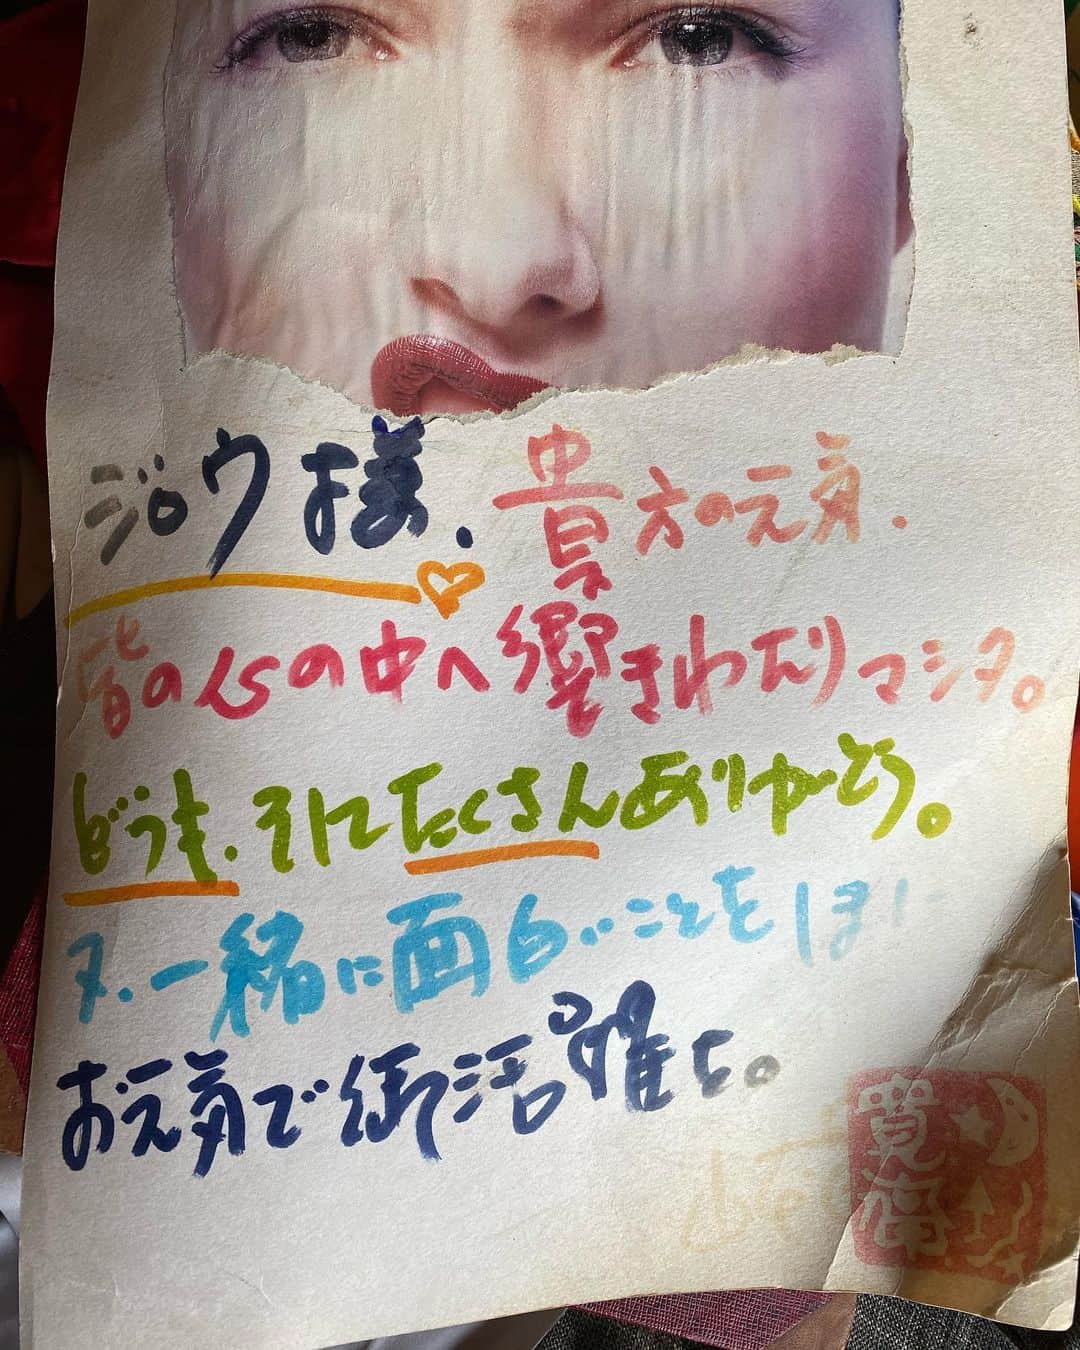 ジョウ様、貴方の元気、
皆の心の中へ響きわたりマシタ。
どうも、そしてたくさんありがとう。
又、一緒に面白いことをしま
お元気で御活躍を。